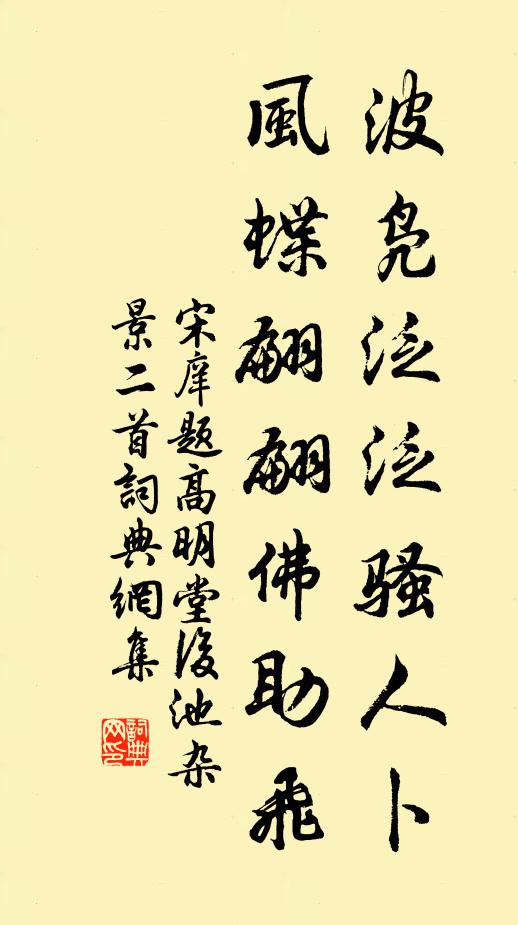 波凫泛泛骚人卜
風蝶翩翩佛助飛
宋庠题高明堂後池杂
景二首詞典網集
詞典
网印